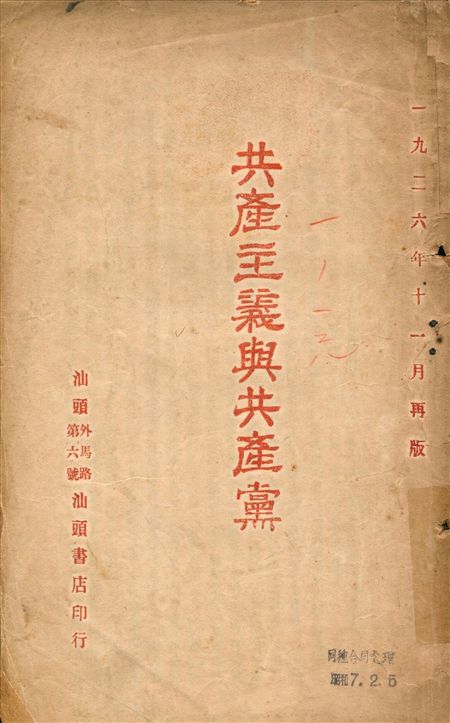 一九二六年十一月再版
共產主義與共產黨
汕頭外馬路第六號汕頭書店印行
同種合同受理
昭和7.2.5